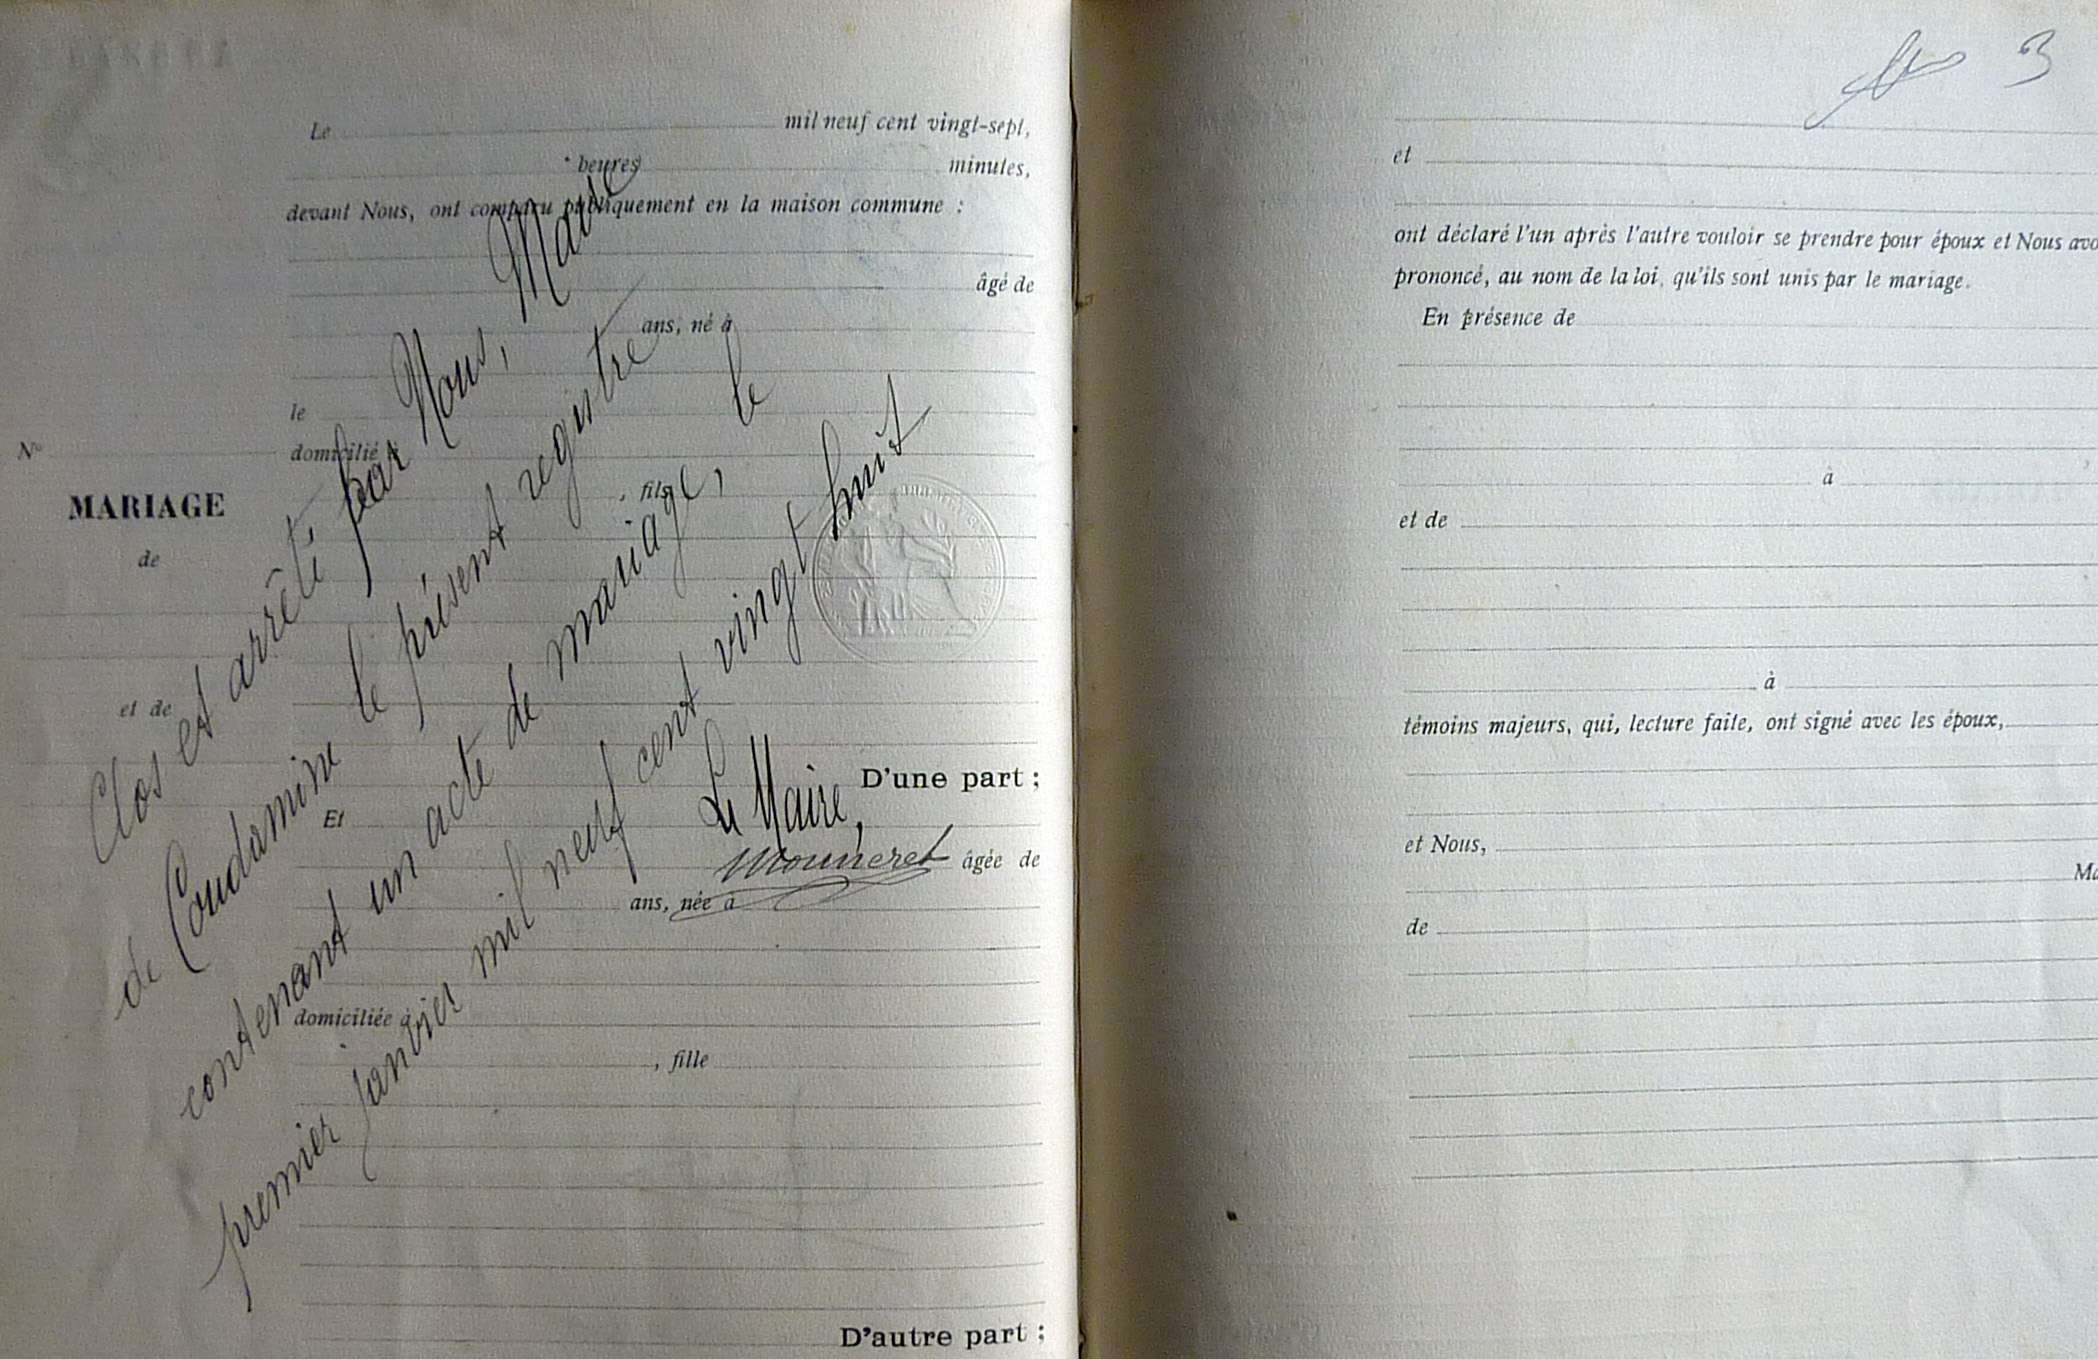 Le mil neuf cent vingt-sept,
heures minutes,
devant Nous, ont comparu publiquement en la maison commune :
âgé de
ans, né à
le
domicilié
, fils
N°
MARIAGE
de
et de
D'une part ;
Et
âgée de
ans, née à
domiciliée à
, fille
D'autre part ;
Clos et arrêté par Nous, Maire
de Coudamine le présent registre
contenant un acte de mariage, le
premier janvier mil neuf cent vingt huit
Le Maire,
Mouneret
3
et
ont déclaré l'un après l'autre vouloir se prendre pour époux et Nous avo
prononcé, au nom de la loi, qu'ils sont unis par le mariage.
En présence de
à
et de
à
témoins majeurs, qui, lecture faite, ont signé avec les époux,
et Nous,
Ma
de